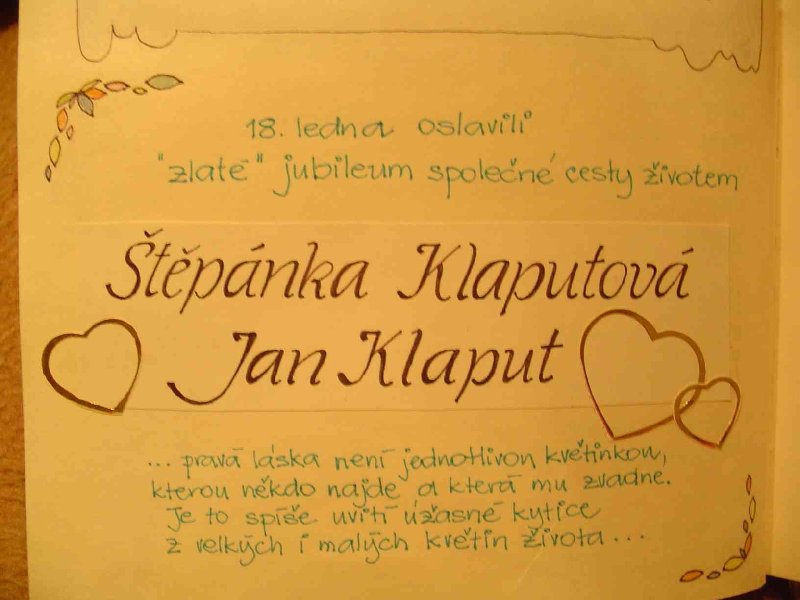 18. ledna oslavili
"zlaté" jubileum společné cesty životem
Štěpánka Klaputová
Jan Klaput
... pravá láska není jednotlivou květinkou,
kterou někdo najde a která mu zvadne.
Je to spíše uvití úžasné kytice
z velkých i malých květin života...